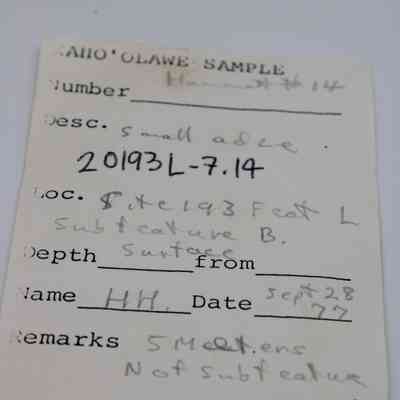 KAHO'OLAWE SAMPLE
Number Hammatt # 14
Desc. small adze.
20193L-7.14
Loc. Site 193 Feat L
Subfeature B.
Surface
Depth from
Name HH. Date Sept 28
77
Remarks 5 M
Not subfeature